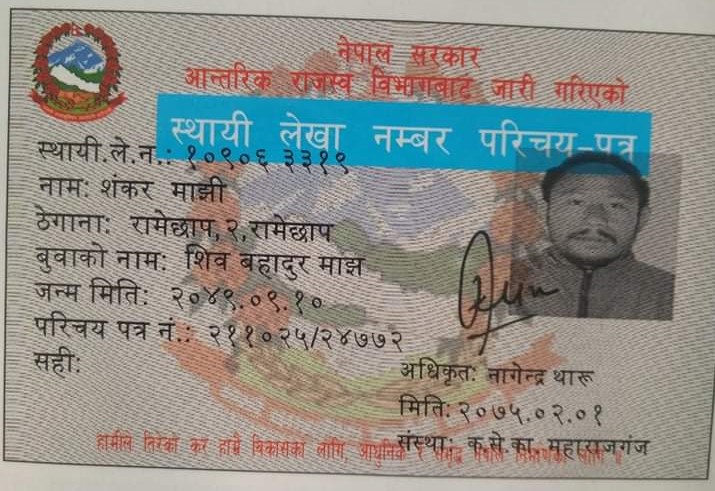 नेपाल सरकार
आन्तरिक राजस्व विभागबाट जारी गरिएको
स्थायी लेखा नम्बर परिचय-पत्र
स्थायी.ले.न.: १०९०६३३१९
नाम: शंकर माझी
ठेगाना: रामेछाप,२,रामेछाप
बुवाको नाम: शिव बहादुर माझ
जन्म मिति: २०४९.०९.१०
परिचय पत्र नं.: २११०२५/२४७७२
सही:
अधिकृत: नागेन्द्र थारू
मिति: २०७५.०२.०१
संस्था: क.से.का. महाराजगंज
हामीले तिरेको कर हाम्रै विकासका लागि, आधुनिक र